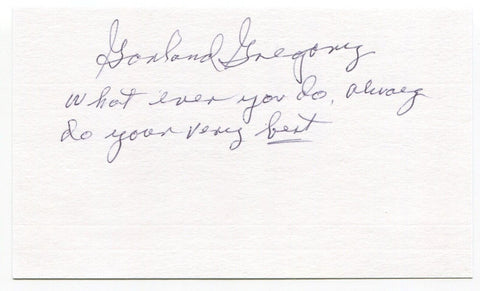 Garland Gregory
What ever you do, always
do your very best